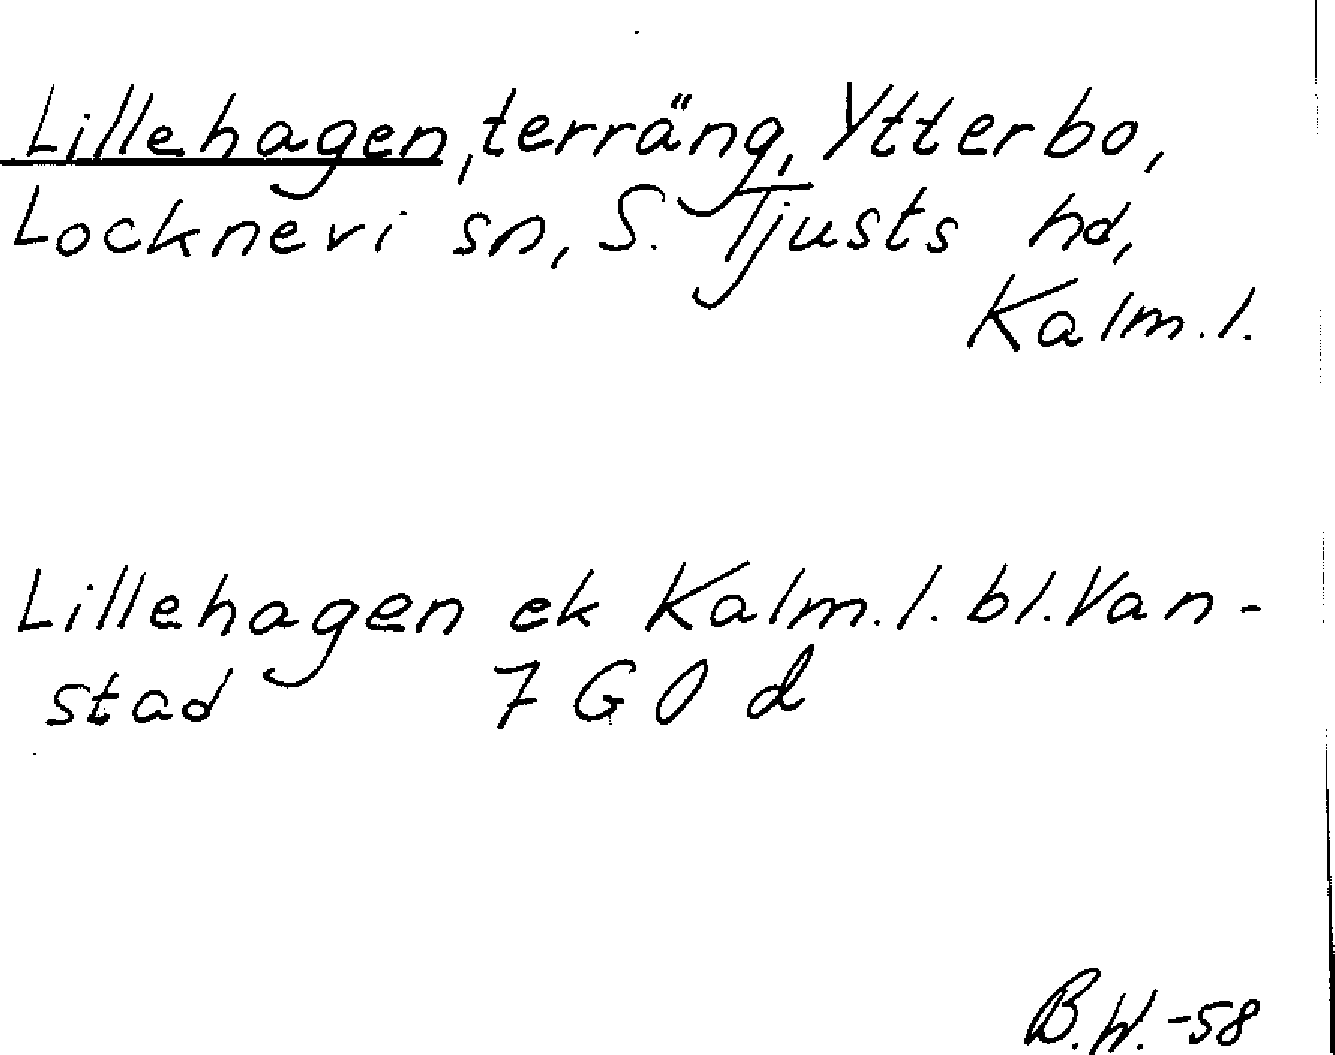 Lillehagen, terräng, Ytterbo,
Locknevi sn, S. Tjusts hd,
Kalm. l.
Lillehagen ek Kalm. l. bl. Van-
stad 7 G 0 d
B.W. -58